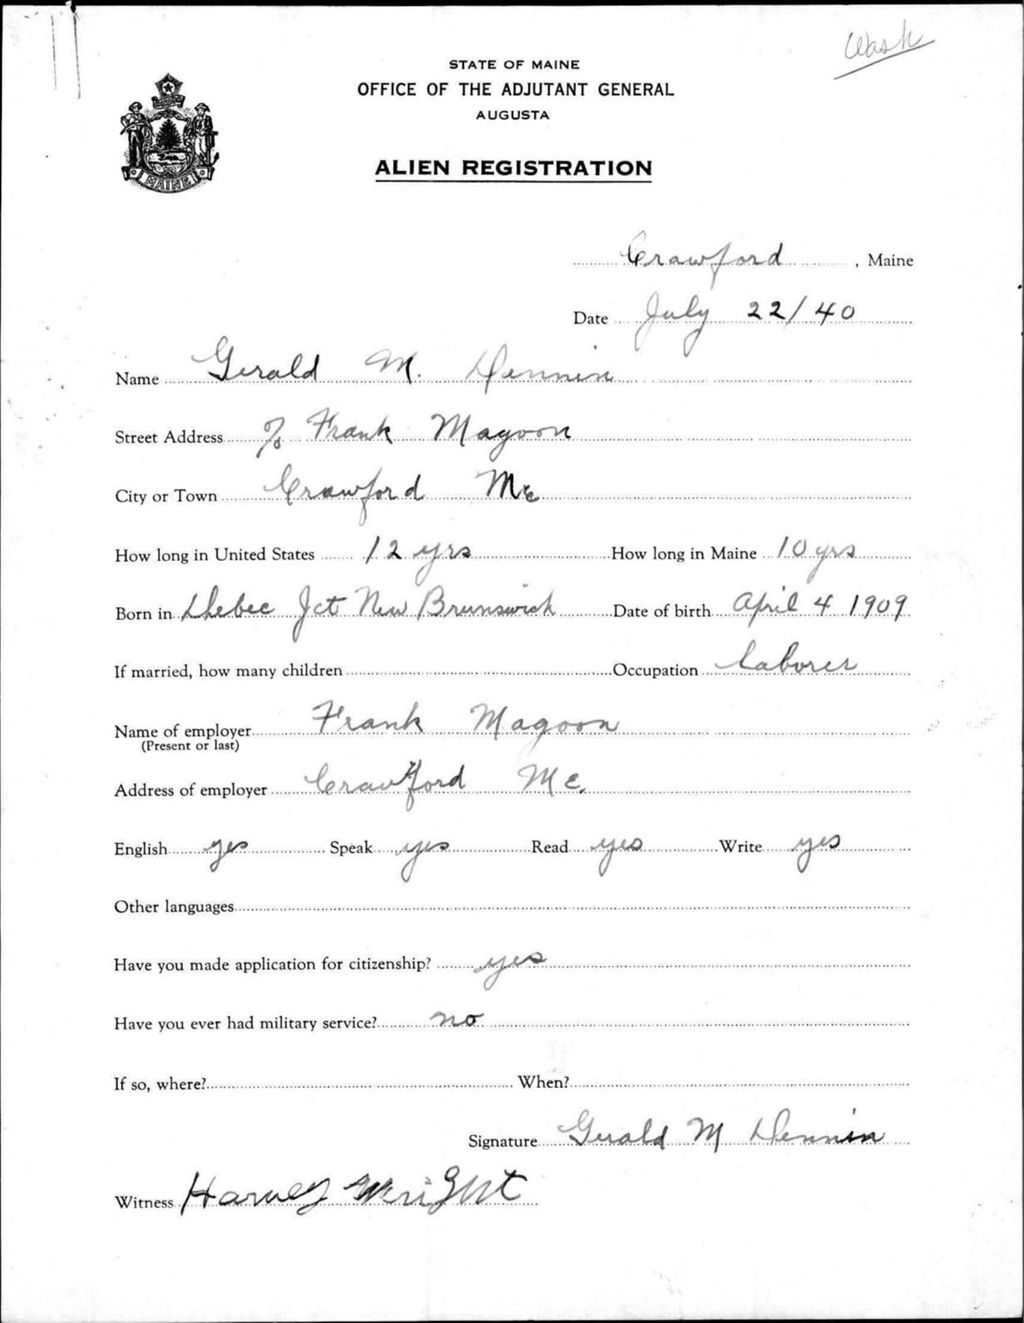 Wash
STATE OF MAINE
OFFICE OF THE ADJUTANT GENERAL
AUGUSTA
ALIEN REGISTRATION
MAINE
Crawford, Maine
Date July 22/40
Name Gerald M. Dennin
Street Address % Frank Magoon
City or Town Crawford Me
How long in United States 12 yrs How long in Maine 10 yrs
Born in Debec Jct New Brunswick Date of birth April 4 1909
If married, how many children Occupation laborer
Name of employer Frank Magoon
(Present or last)
Address of employer Crawford Me.
English yes Speak yes Read yes Write yes
Other languages
Have you made application for citizenship? yes
Have you ever had military service? no
If so, where? When?
Signature Gerald M Dennin
Witness Harvey Wright